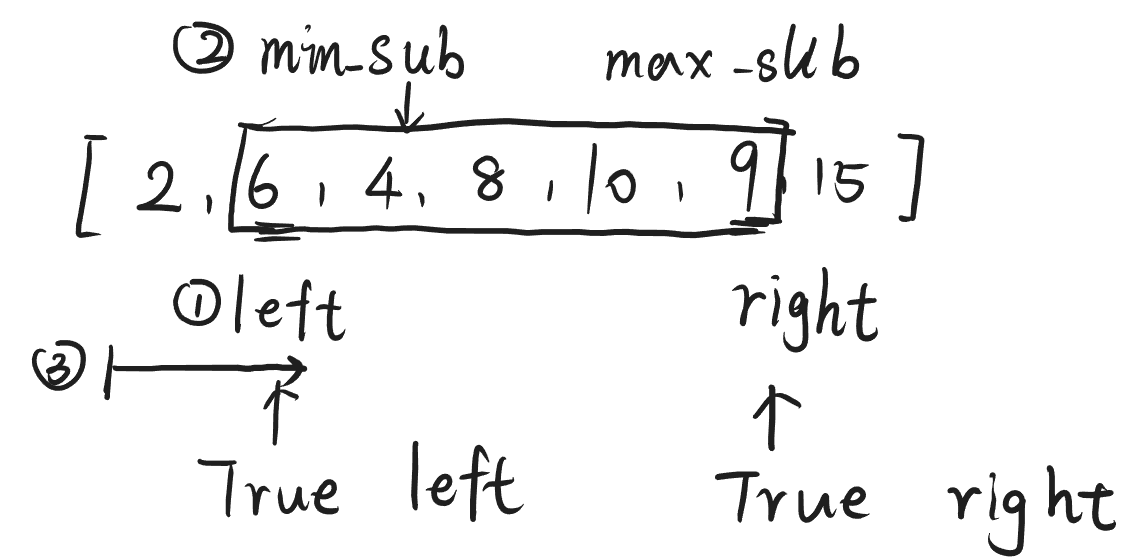 ② min_sub max_sub
[ 2, 6, 4, 8, 10, 9, 15 ]
① left right
③
True left True right